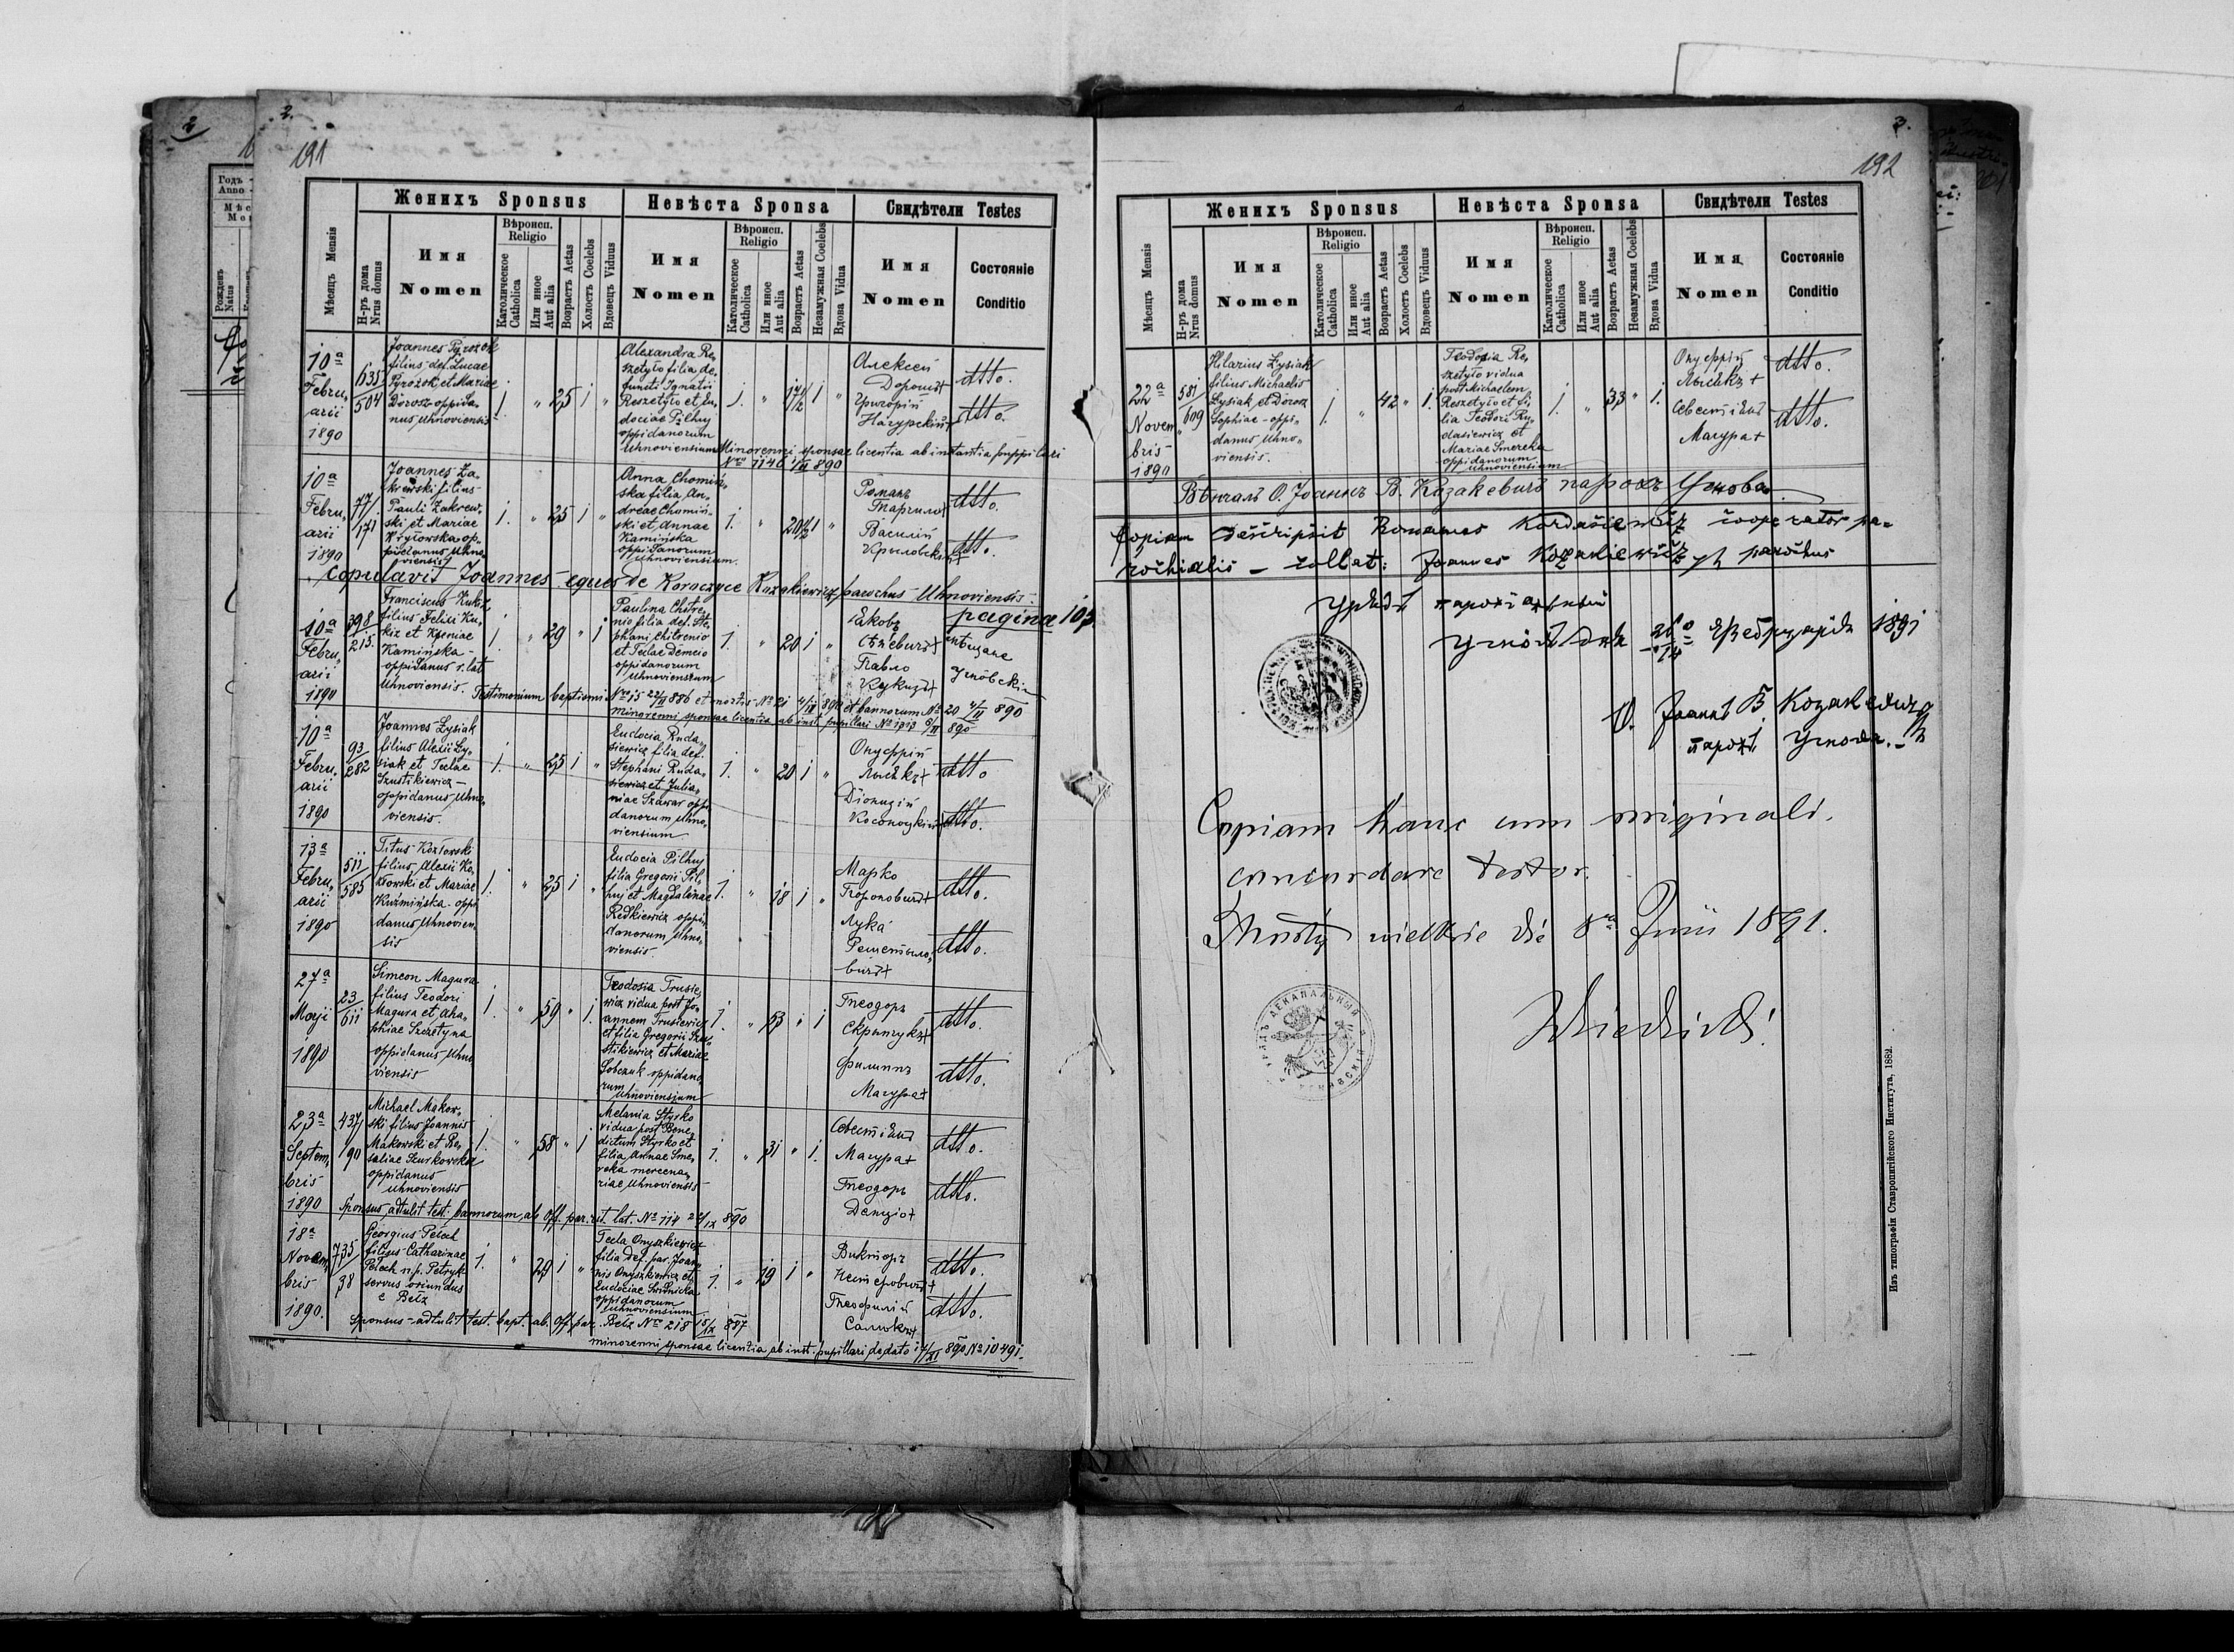 2.
191
Женихъ Sponsus
Невѣста Sponsa
Свидѣтели Testes
Мѣсяцъ Mensis
Н-ръ дома
Nrus domus
Имя
Nomen
Вѣроисп.
Religio
Католическое
Catholica
Или иное
Aut alia
Возрастъ Aetas
Холостъ Coelebs
Вдовецъ Viduus
Имя
Nomen
Вѣроисп.
Religio
Католическое
Catholica
Или иное
Aut alia
Возрастъ Aetas
Незамужная Coelebs
Вдова Vidua
Имя
Nomen
Состояніе
Conditio
10a
Febru„
arii
1890
635
504
Joannes Pyrożok
filius def. Lucae
Pyrożok et Mariae
Dorosz oppida„
nus Uhnoviensis
1. „ 25 1 „
Alexandra Re„
szetyło filia de„
functi Ignatii
Reszetyło et Eu„
dociae Pilhuj
oppidanorum
Uhnoviensium
1. „ 17 1/2 1 „
Алексей
Дорошъ+
Григорій
Нагурскій+
dtto.
dtto.
Minorenni sponsae licentia ab instantia pupillari
Nro 1140 1/II 890
10a
Febru„
arii
1890
77
171
Joannes Za„
krewski filius
Pauli Zakrew„
ski et Mariae
Kryłowska op„
pidanus Uhno„
viensis
1. „ 25 1 „
Anna Chomiń„
ska filia An„
dreae Chomiń„
ski et Annae
Kamińska
oppidanorum
Uhnoviensium
1. „ 20 1/2 1 „
Романъ
Василій
dtto.
dtto.
Copulavit Joannes eques de Koraczyce Kozakiewicz parochus Uhnoviensis
pagina 103
10a
Febru„
arii
1890
398
215.
Franciscus Kukiz
filius Felixi Ku„
kiz et Xseniae
Kamińska
oppidanus r. lat.
Uhnoviensis.
1 „ 29 „ 1
Paulina Chitre„
nio filia def. Ste„
phani Chitrenio
et Teclae Demcio
oppidanorum
Uhnoviensium
1. „ 20 1 „
Яковъ
Павло
Кукизъ+
мѣщане
Угнôвскіи
Testimonium baptismi Nro 15 22/II 886 et mortis No 21 4/II 890 et bannorum No 20 4/II 890
minorenni sponsae licentia ab inst. pupillari No 1213 6/II 890
10a
Febru„
arii
1890
93
282
Joannes Łysiak
filius Alexii Ły„
siak et Teclae
Szustikiewicz –
oppidanus Uhno„
viensis.
1. „ 25 1 „
Eudocia Ruda„
siewicz filia def.
Stephani Ruda„
siewicz et Julia„
niae Szawar oppi„
danorum Uhno„
viensium
1. „ 20 1 „
Онуфрій
Лысѣкъ+
Діонизій
Косоноцкій+
dtto
dtto.
13a
Febru„
arii
1890
511
585
Titus Kozłowski
filius Alexii Ko„
złowski et Mariae
Kuźmińska oppi
danus Uhnovien„
sis
1. „ 25 1 „
Eudocia Pilhuj
filia Gregorii Pil„
huj et Magdalenae
Redkiewicz oppi„
danorum Uhno„
viensis.
1. „ 18 1 „
Марко
Лука
Решетыло„
вичъ+
dtto.
dtto.
27a
Maji
1890
23
611
Simeon Magura
filius Teodori
Magura et Aha„
phiae Szczetyna
oppidanus Uhno
viensis
1. „ 59 „ 1.
Teodosia Trusie„
wicz vidua post Jo„
annem Trusiewicz
et filia Gregorii Szu„
stikiewicz et Mariae
Sobczuk oppidano„
rum
Uhnoviensium
1. „ 53 „ 1
Теодоръ
Скрыпчукъ+
Филиппъ
Магура+
dtto.
dtto.
23a
Septem„
bris
1890
437
190
Michael Makow„
ski filius Joannis
Makowski et Ro„
saliae Szurkowska
oppidanus
Uhnoviensis
1. „ 58 „ 1
Melania Styrko
vidua post Bene„
dictum Styrko et
filia Annae Sme„
reka mercena„
riae Uhnoviensis
1. „ 31 „ 1.
Севастіянъ
Магура+
Теодоръ
Демціо+
dtto.
dtto.
Sponsus adtulit test. bannorum ab Off. par. rit. lat. No 114 22/IX 890
18a
Novem„
bris
1890.
735
38
Georgius Pelech
filius Catharinae
Pelech n.p. Petryk
servus oriundus
e Bełz
1. „ 29 1 „
Tecla Onyszkiewicz
filia def. par. Joan„
nis Onyszkiewicz et
Eudociae Swidnicka
oppidanorum
Uhnoviensium
1. „ 19 1 „
Викторъ
Нестеровичъ+
Теофилій
Салюкъ+
dtto.
dtto.
Sponsus adtulit test. bapt. ab Off. par. Bełz No 218 15/IX 887
minorenni sponsae licentia ab inst. pupillari de dato 17/XI 890 No 10491.
3.
192
Женихъ Sponsus
Невѣста Sponsa
Свидѣтели Testes
Мѣсяцъ Mensis
Н-ръ дома
Nrus domus
Имя
Nomen
Вѣроисп.
Religio
Католическое
Catholica
Или иное
Aut alia
Возрастъ Aetas
Холостъ Coelebs
Вдовецъ Viduus
Имя
Nomen
Вѣроисп.
Religio
Католическое
Catholica
Или иное
Aut alia
Возрастъ Aetas
Незамужная Coelebs
Вдова Vidua
Имя
Nomen
Состояніе
Conditio
22a
Novem„
bris
1890
581
609
Hilarius Łysiak
filius Michaelis
Łysiak et Dorosz
Sophiae – oppi„
danus Uhno„
viensis.
1. „ 42 „ 1.
Teodosia Re„
szetyło vidua
post Michaelem
Reszetyło et fi„
lia Teodori Ru„
dasiewicz et
Mariae Smereka
oppidanorum
Uhnoviensium
1. „ 33 „ 1.
Онуфрій
Лысѣкъ+
Севастіянъ
Магура+
dtto.
dtto.
Вѣнчалъ О. Іоаннъ В. Козакевичъ парохъ Угнова.
Copiam descripsit Romanus Kordasiewicz cooperator pa„
rochialis – collat: Joannes Kozakiewicz parochus
Урядъ парохіальный
Угнôвъ дня 26/14 Фебруарія 1891
О. Іоаннъ В. Козакевичъ
парохъ Угнова.
Copiam hanc cum originali
concordare testor.
Mosty wielkie die 8a Junii 1891.
Изъ типографіи Ставропигійского Института, 1882.
2
Годъ
Anno
Рожденъ
Natus